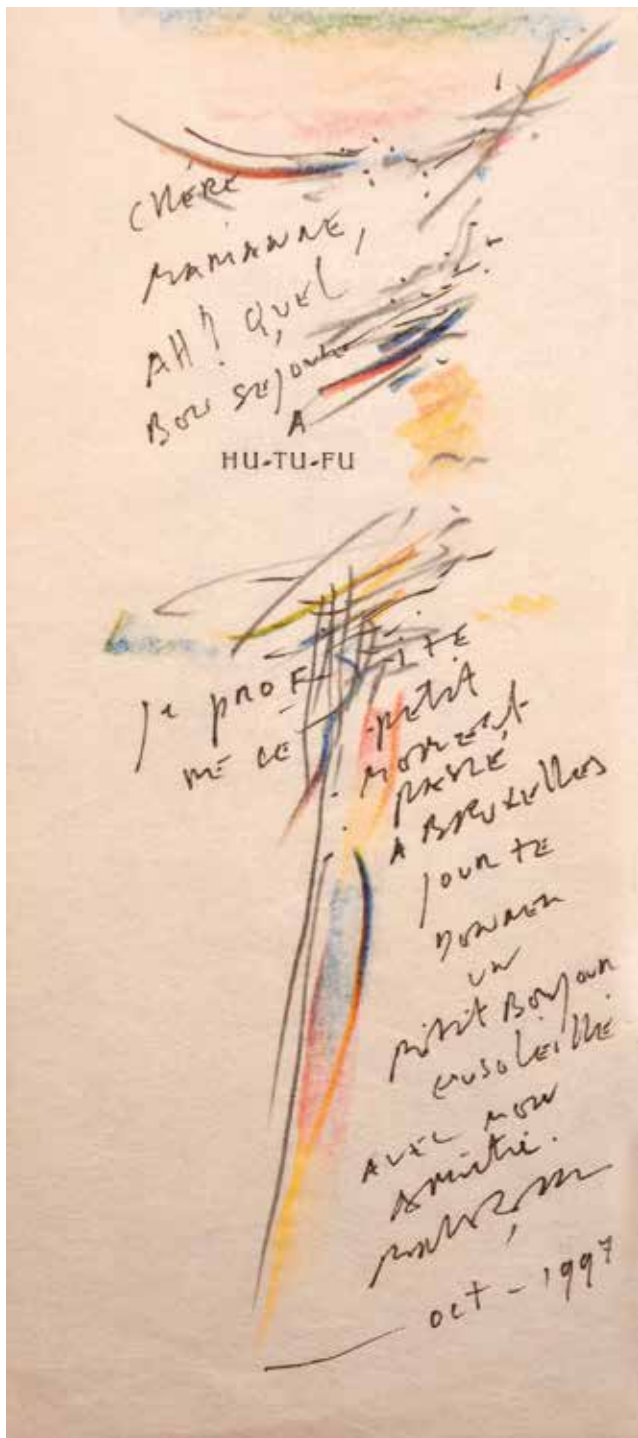 CHÈRE
MARIANNE,
AH! QUEL
BON SEJOUR
A
HU-TU-FU
Je PROFITE
DE CE petit
MOMENT
PASSÉ
A BRUXELLES
POUR TE
DONNER
UN
petit BONJOUR
ensoleillé
AVEC MON
Amitié.
oct - 1997